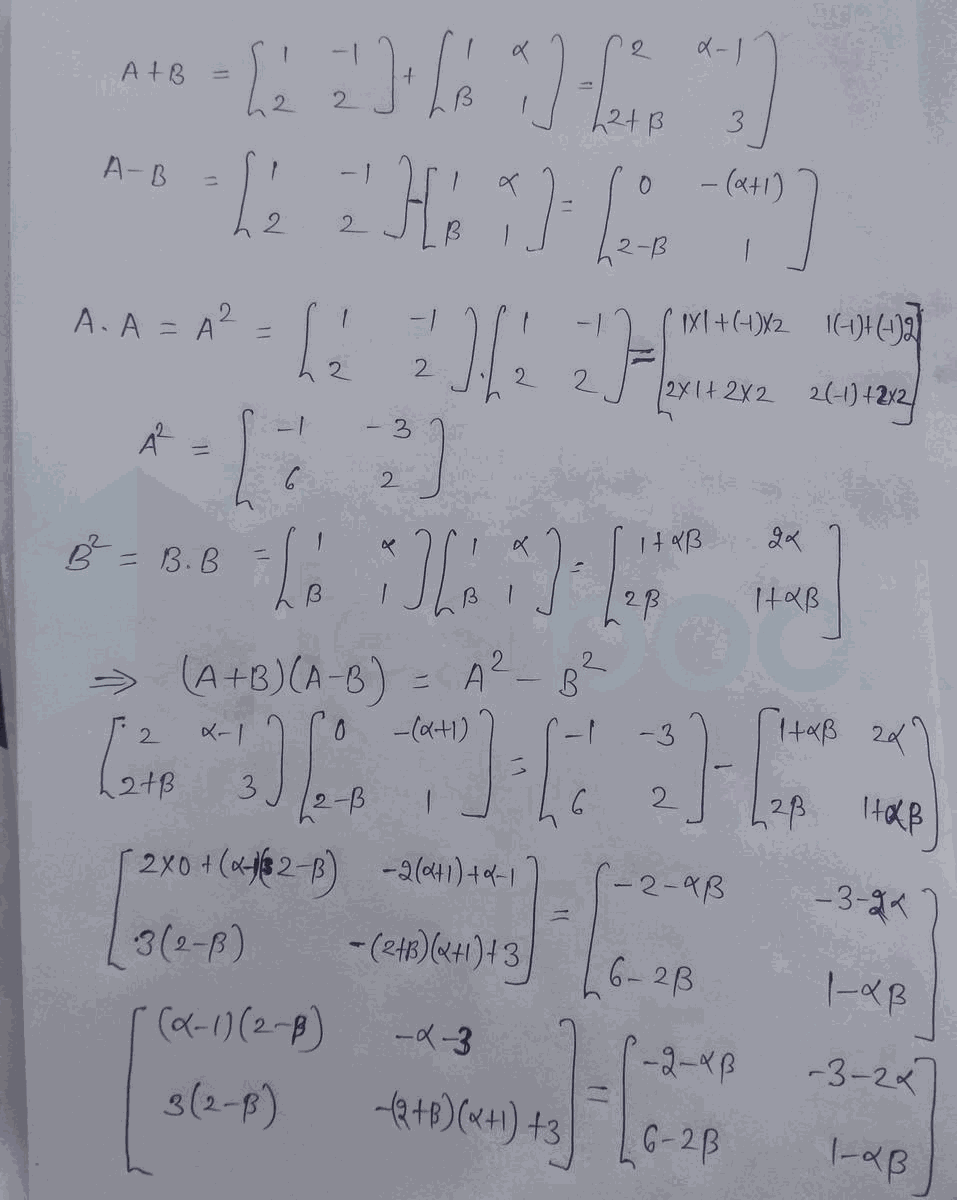 A+B = [1 -1 2 2] + [1 α β 1] = [2 α-1 2+β 3]
A-B = [1 -1 2 2] - [1 α β 1] = [0 -(α+1) 2-β 1]
A.A = A² = [1 -1 2 2].[1 -1 2 2] = [1x1+(-1)x2 1(-1)+(-1)2 2x1+2x2 2(-1)+2x2]
A² = [-1 -3 6 2]
B² = B.B = [1 α β 1][1 α β 1] = [1+αβ 2α 2β 1+αβ]
⇒ (A+B)(A-B) = A² - B²
[2 α-1 2+β 3][0 -(α+1) 2-β 1] = [-1 -3 6 2] - [1+αβ 2α 2β 1+αβ]
[2x0+(α-1)(2-β) -2(α+1)+α-1 3(2-β) -(2+β)(α+1)+3] = [-2-αβ -3-2α 6-2β 1-αβ]
[(α-1)(2-β) -α-3 3(2-β) -(2+β)(α+1)+3] = [-2-αβ -3-2α 6-2β 1-αβ]